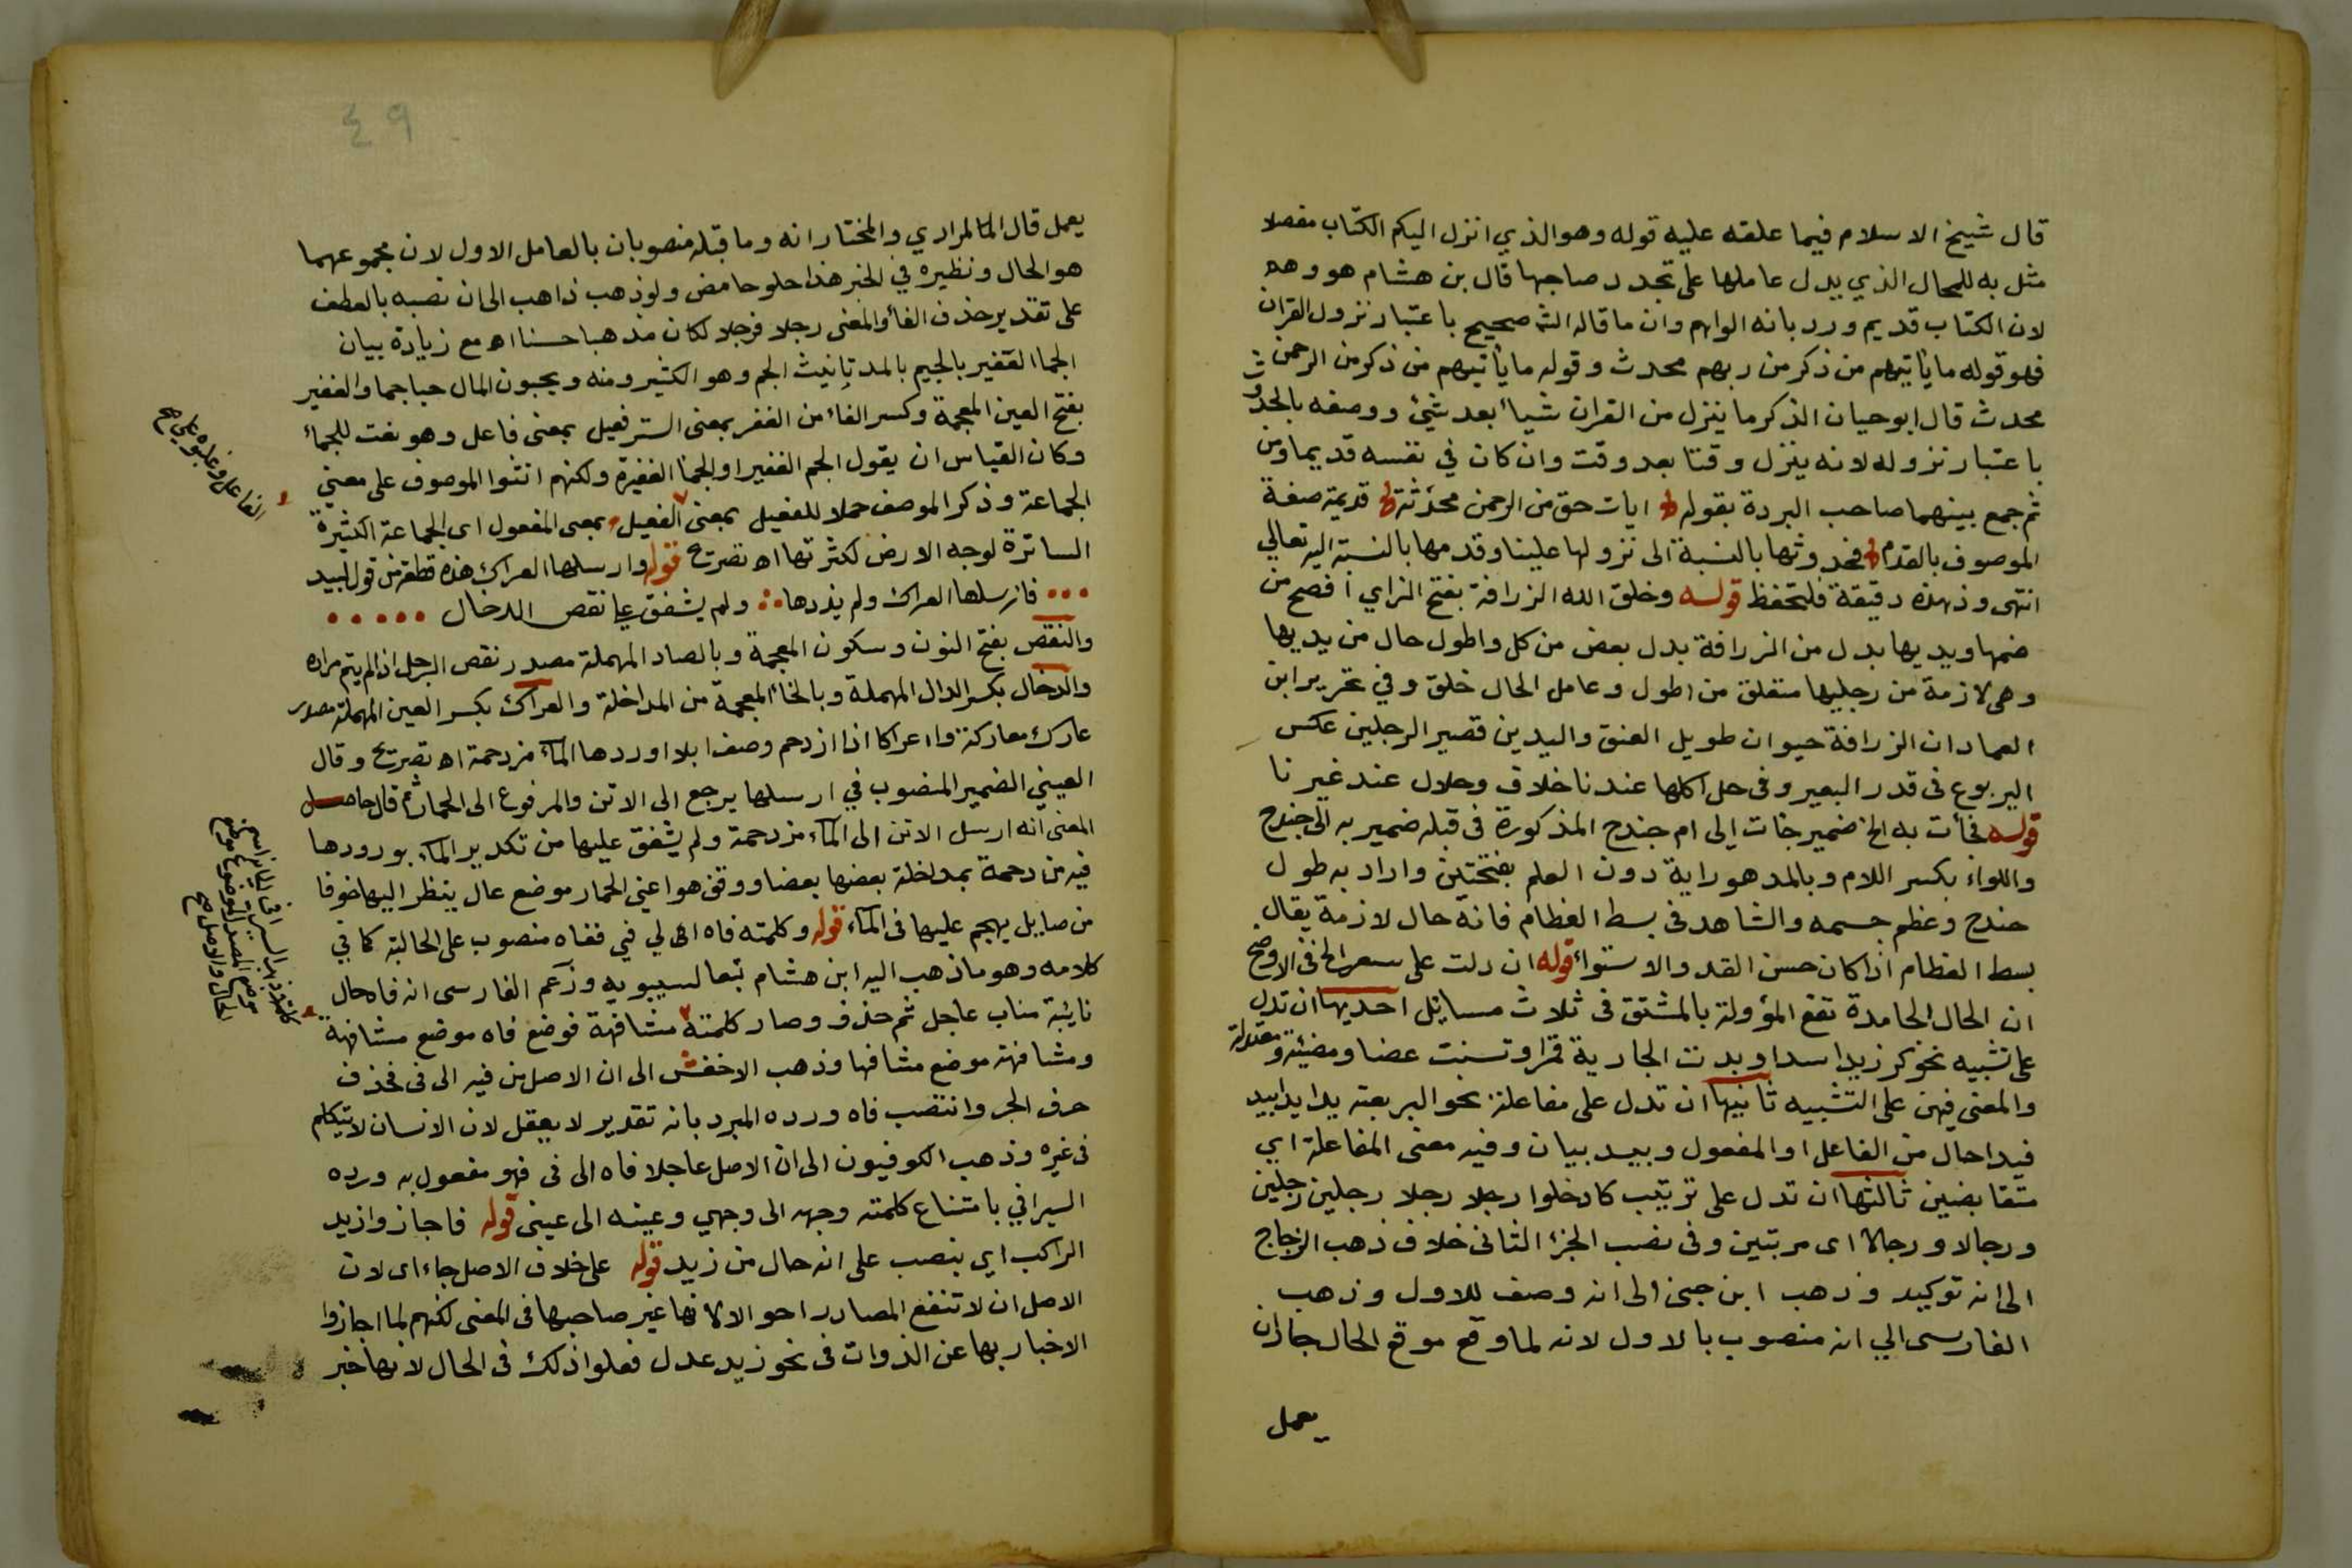 قال شيخ الاسلام فيما علقه عليه قوله وهو الذي انزل اليكم الكتاب مفصلا
مثل به للحال الذي يدل عاملها على تجدد صاحبها قال بن هشام هو وهم
لان الكتاب قديم ورد بانه الواهم وان ما قاله الش صحيح باعتبار نزول القران
فهو قوله ما يأتيهم من ذكر من ربهم محدث وقوله ما يأتيهم من ذكر من الرحمن
محدث قال ابو حيان الذكر ما ينزل من القران شيأ بعد شئ ووصفه بالحدوث
باعتبار نزوله لانه ينزل وقتا بعد وقت وان كان في نفسه قديما ومن
ثم جمع بينهما صاحب البردة بقوله ايات حق من الرحمن محدثة قديمة صفة
الموصوف بالقدم فحدوثها بالنسبة الى نزولها علينا وقدمها بالنسبة اليه تعالي
انتهى وذ هذه دقيقة فلتحفظ قوله وخلق الله الزرافة بفتح الزاي افصح من
ضمها ويديها بدل من الزرافة بدل بعض من كل واطول حال من يديها
وهى لازمة من رجليها متعلق من اطول وعامل الحال خلق وفي تحرير ابن
العماد ان الزرافة حيوان طويل العنق واليدين قصير الرجلين عكس
اليربوع فى قدر البعير وفى حل اكلها عندنا خلاف وحلال عند غيرنا
قوله فجأت به الخ ضمير جات إلى ام جندح المذكورة فى قبله ضمير به الى جندح
واللواء بكسر اللام وبالمد هو راية دون العلم بفتحتين واراد به طول
جندح وعظم جسمه والشاهد فى بسط العظام فانه حال لازمة يقال
بسط العظام اذا كان حسن القد والاستواء قوله ان دلت على سعر الخ فى الاوضح
ان الحال الجامدة تقع المؤولة بالمشتق فى ثلاث مسائل احديها ان تدل
على تشبيه نحو كر زيد اسدا وبدت الجارية قمرا وتسنت غصنا ومضيئة ومعتدلة
والمعنى فيهن على التشبيه ثانيها ان تدل على مفاعلة نحو البر بعته يدا بيد
فيدا حال من الفاعل او المفعول وبيد بيان وفيه معنى المفاعلة اي
متقابضين ثالثها ان تدل على ترتيب كادخلوا رجلا رجلا رجلين رجلين
ورجالا ورجالا اى مرتبين وفى نصب الجزء الثانى خلاف ذهب الزجاج
الى انه توكيد وذهب ابن جنى الى انه وصف للاول وذهب
الفارسى الي انه منصوب بالاول لانه لما وقع موقع الحال جاز ان
يعمل
٤٩
يعمل قال المرادي والمختار انه وما قبله منصوبان بالعامل الاول لان مجموعهما
هو الحال ونظيره في الخبر هذا حلو حامض ولو ذهب ذاهب الى ان نصبه بالعطف
على تقدير حذف الفأ والمعنى رجلا فرجلا لكان مذهبا حسنا اه مع زيادة بيان
الجما الغفير بالجيم بالمد تانيث الجم وهو الكثير ومنه ويحبون المال حبا جما والغفير
بفتح الغين المعجمة وكسر الفاء من الغفر بمعنى الستر فعيل بمعنى فاعل وهو نعت للجماء
وكان القياس ان يقول الجم الغفير او الجما الغفيرة ولكنهم انثوا الموصوف على معنى
الجماعة وذكر الموصف حملا للفعيل بمعنى الفعيل بمعنى المفعول اى الجماعة الكثيرة
الساترة لوجه الارض لكثرتها اه تصرتح قوله وارسلها العراك هذه قطعة من قول لبيد
فارسلها العراك ولم يذدها ولم يشفق على نقص الدخال
والنقص بفتح النون وسكون المعجمة وبالصاد المهملة مصدر نقص الرجل اذا لم يتم مراده
والدخال بكسر الدال المهملة وبالخاء المعجمة من المداخلة والعراك بكسر العين المهملة مصدر
عارك معاركة وا عراكا اذا ازدحم وصف ابلا اوردها الماء مزدحمة اه تصرتح وقال
العيني الضمير المنصوب في ارسلها يرجع الى الاتن والمرفوع الى الحمار ثم قال حاصل
المعنى انه ارسل الاتن الى الماء مزدحمة ولم يشفق عليها من تكدير الماء بورودها
فيه من دحمة بمداخلة بعضها بعضا ووقف هو اعني الحمار موضع عال ينظر اليها خوفا
من صايل يهجم عليها فى الماء قوله وكلمته فاه الى لي في ففاه منصوب على الحالية كما في
كلامه وهو ما ذهب اليه ابن هشام تبعا لسيبويه وزعم الفارسى انه فاه حال
نايبة مناب عاجل ثم حذف وصار كلمته مشافهة فوضع فاه موضع مشافهة
ومشافهة موضع مشافها وذهب الاخفش الى ان الاصل من فيه الى فى فحذف
حرف الجر وانتصب فاه ورده المبرد بانه تقدير لا يعقل لان الانسان لا يتكلم
فى غيره وذهب الكوفيون الى ان الاصل عاجلا فاه الى فى فهو مفعول به ورده
السيرافي بامتناع كلمته وجهه الى وجهي وعينه الى عينى قوله فاجازوا زيد
الراكب اي بنصب على انه حال من زيد قوله على خلاف الاصل جاء اى لان
الاصل ان لا تنفع المصادر احوالا لانها غير صاحبها فى المعنى لكنهم لما اجازوا
الاخبار بها عن الذوات فى نحو زيد عدل فعلوا ذلك فى الحال لانها خبر